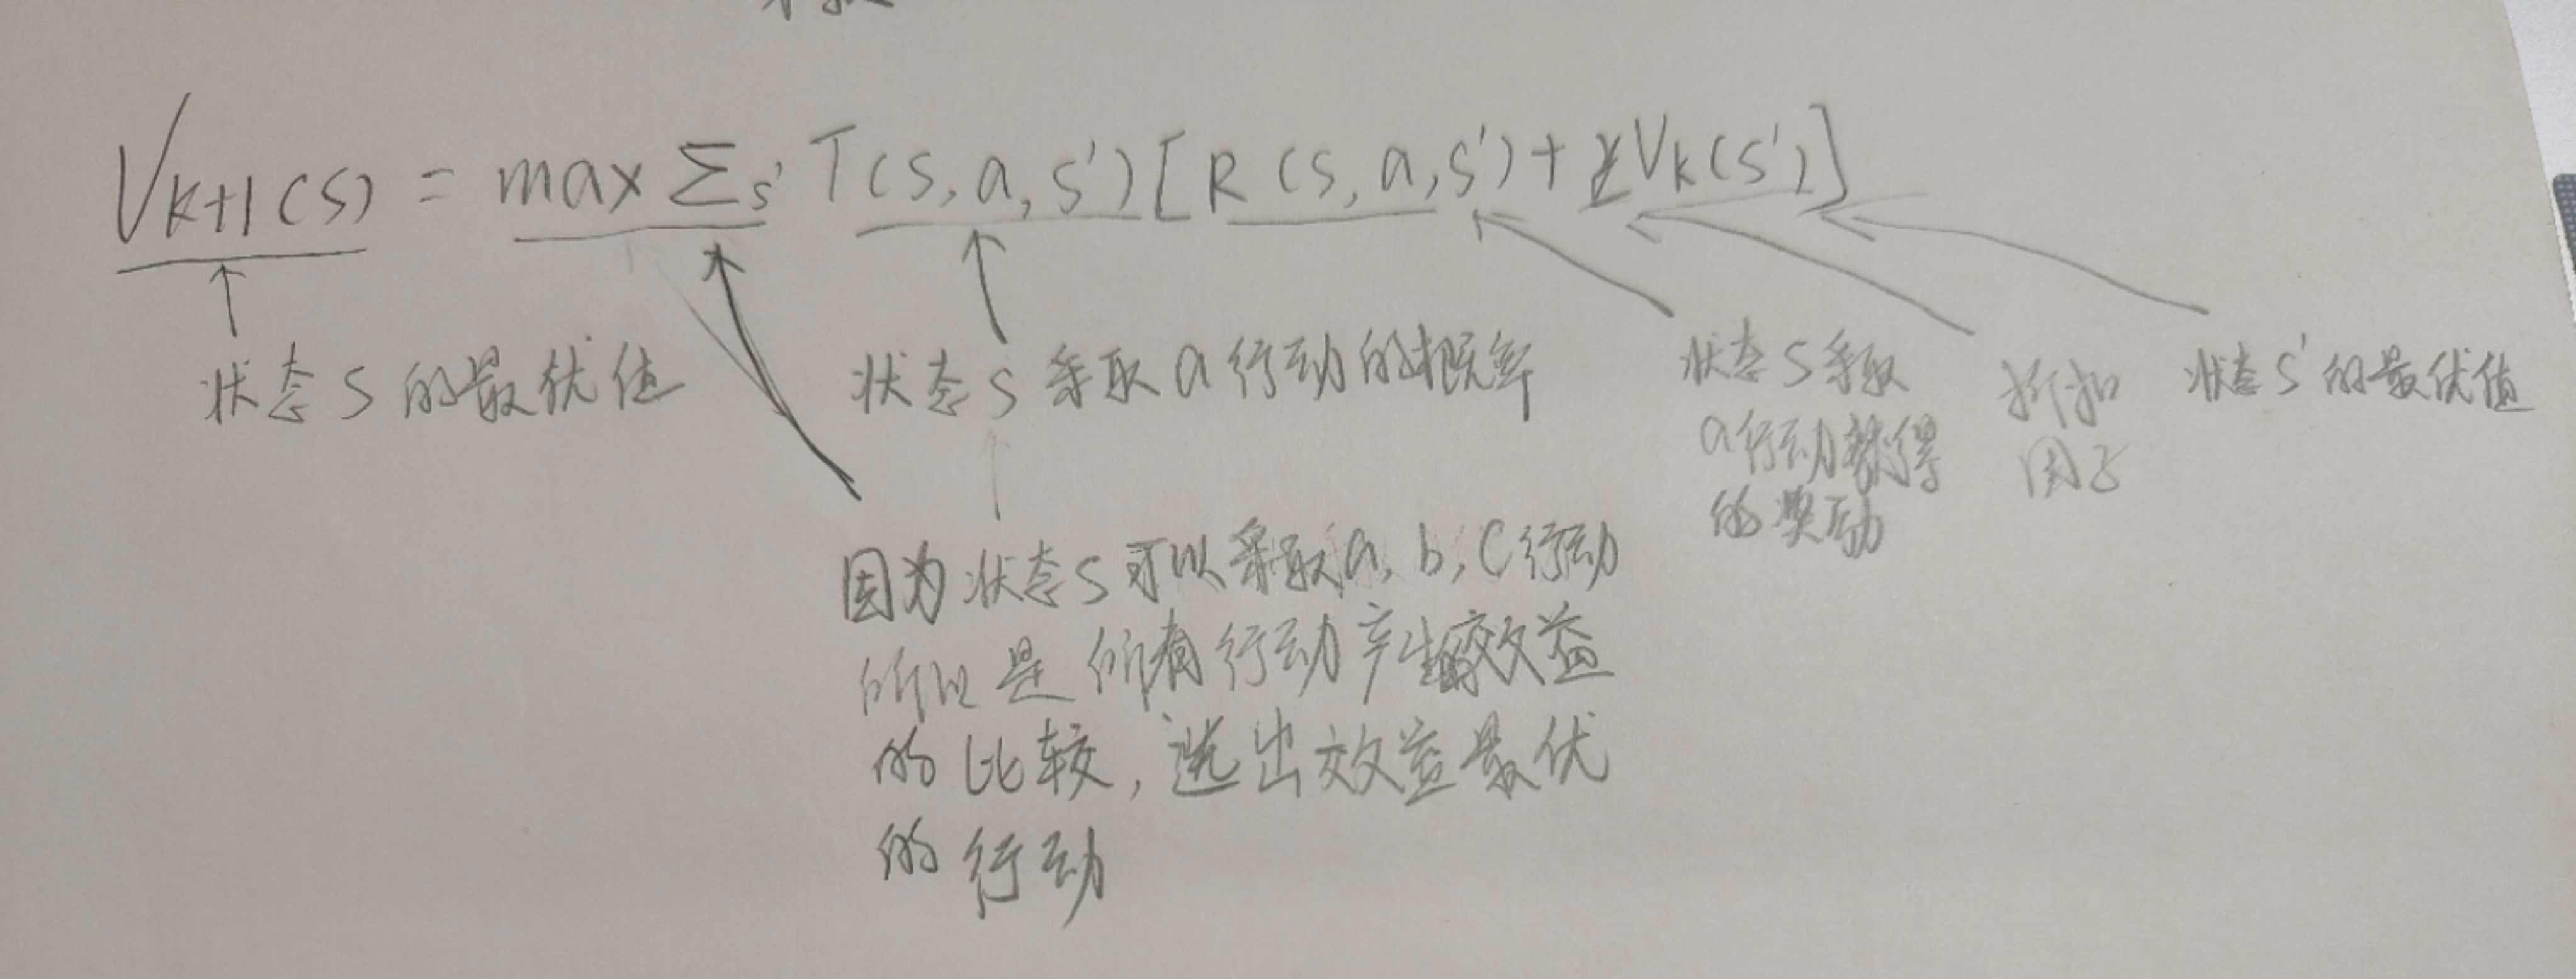 V_{k+1}(s) = max Σ_{s'} T(s, a, s')[R(s, a, s') + γV_k(s')]
状态S的最优值
状态S采取a行动的概率
状态S采取
a行动获得
的奖励
折扣
因子
状态S'的最优值
因为状态S可以采取a, b, c行动
所以是所有行动产生的效益
的比较，选出效益最优
的行动